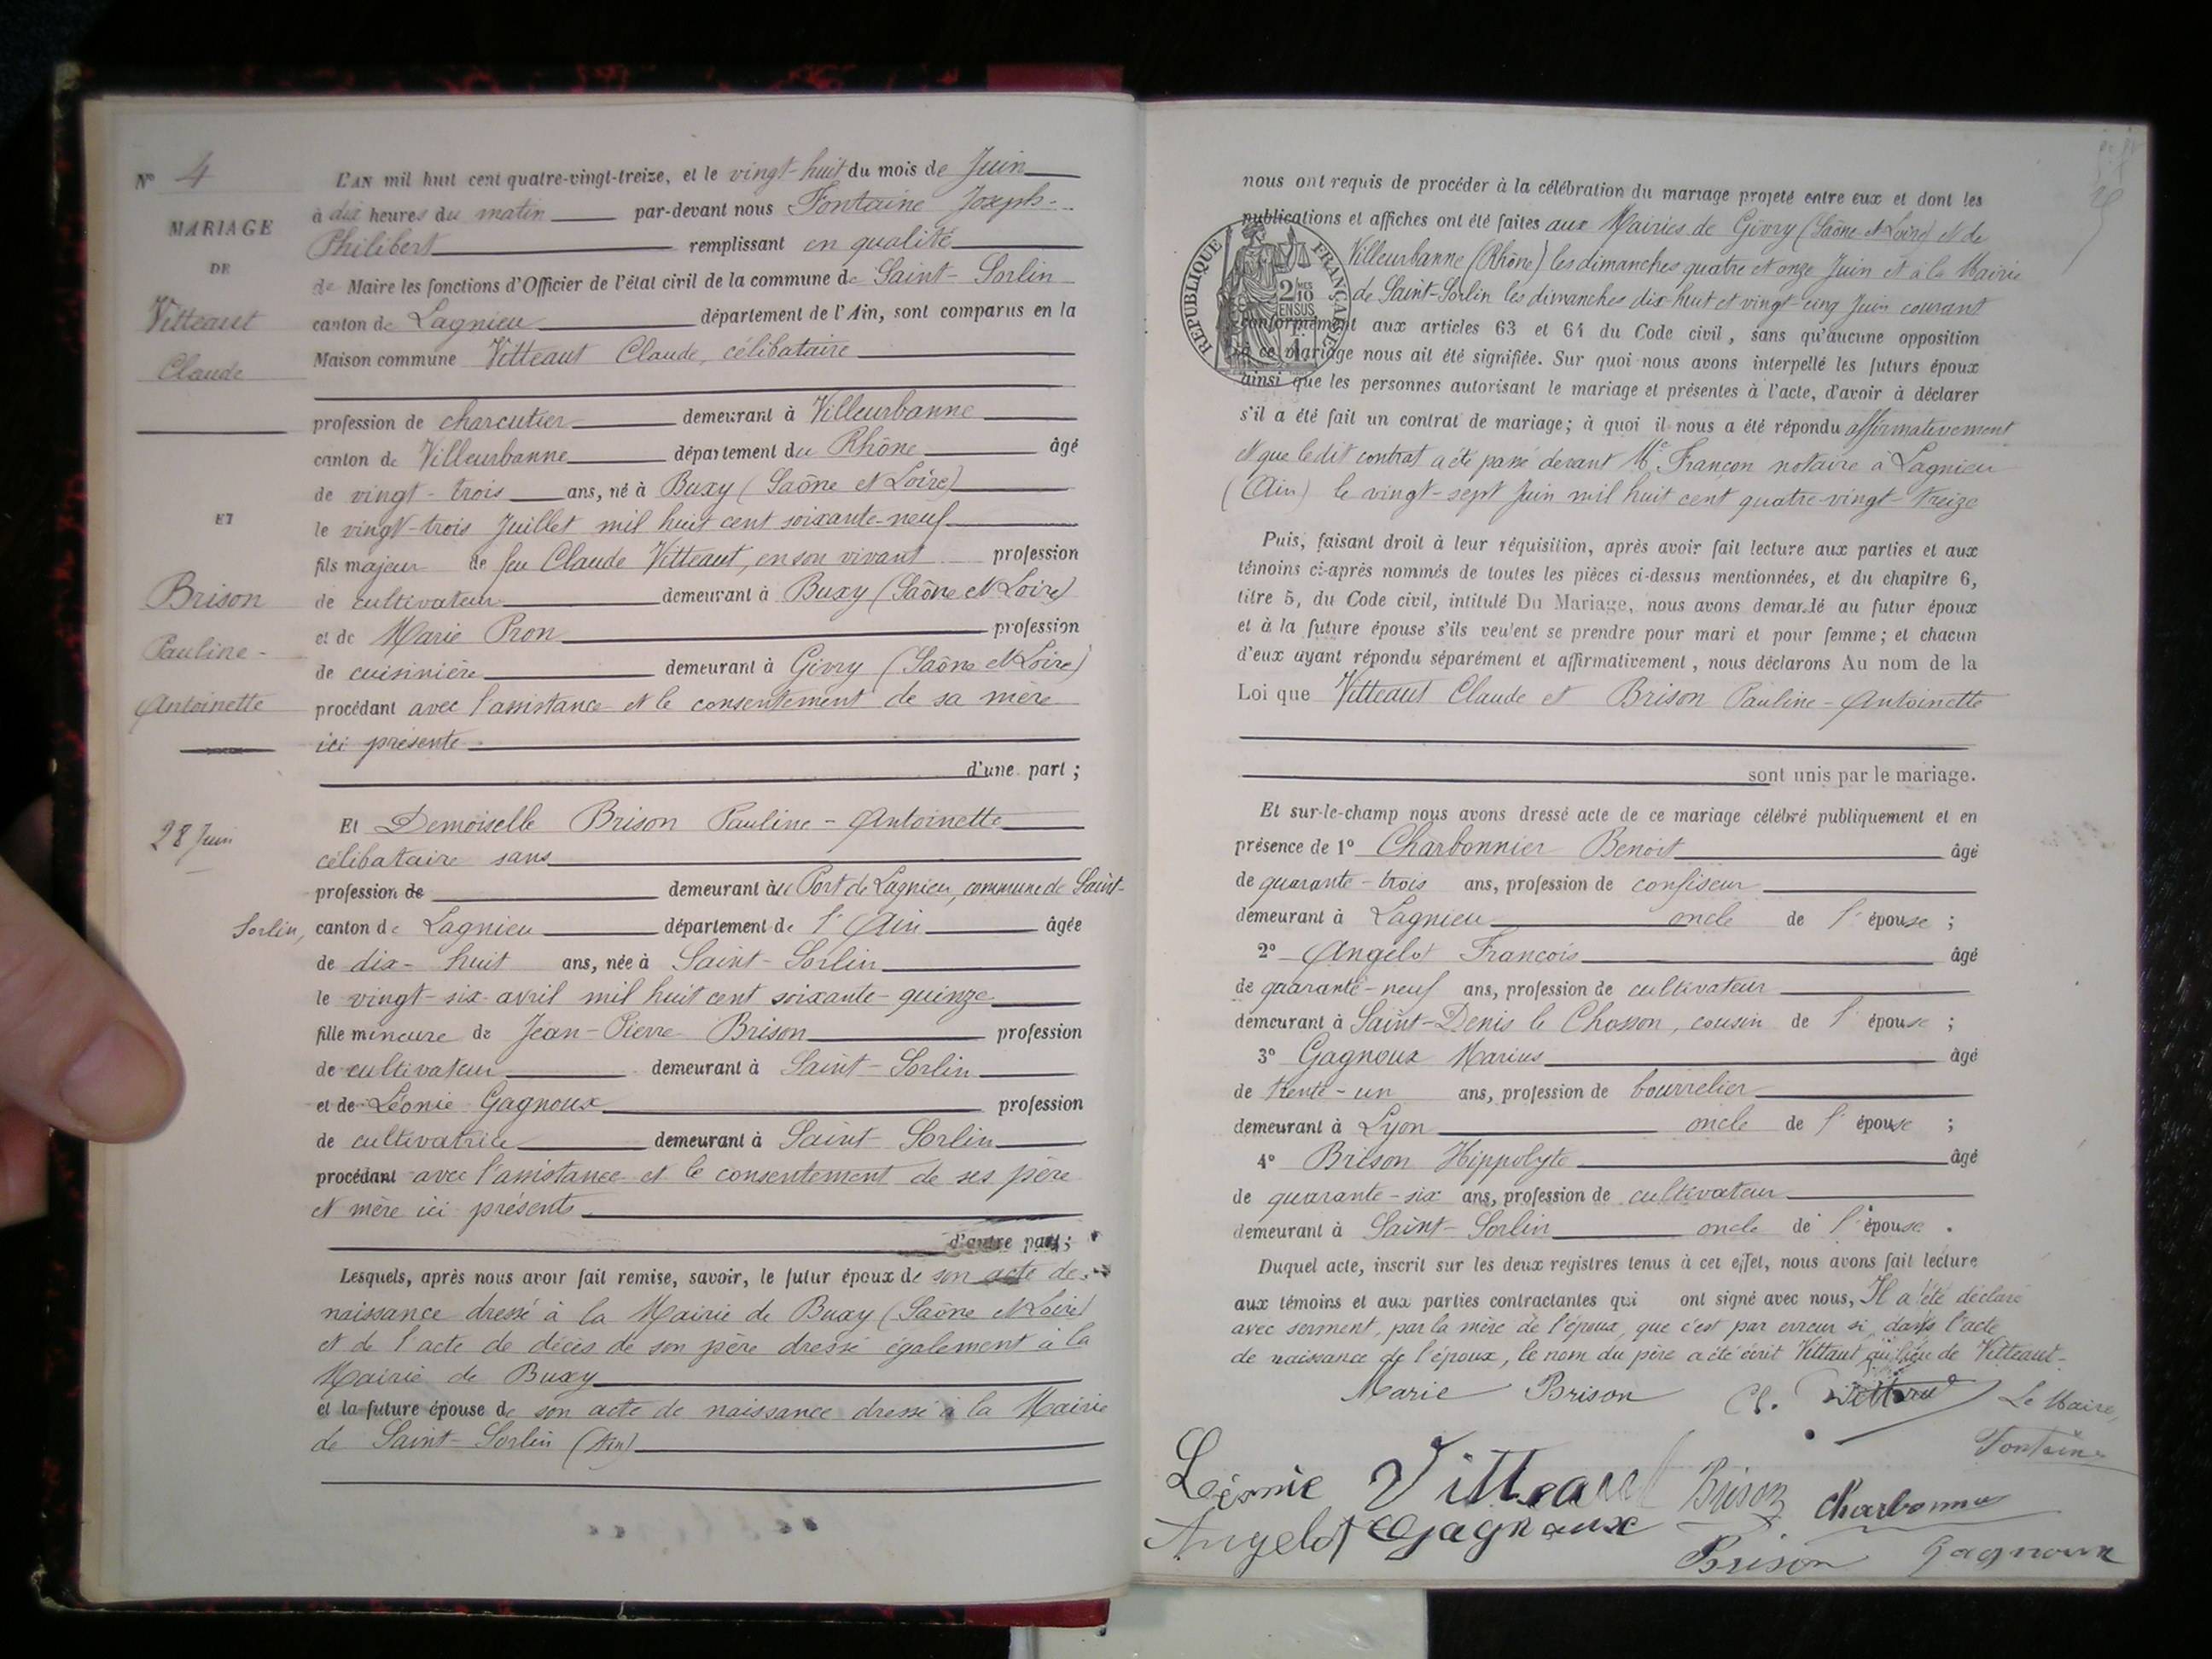 Nº 4
MARIAGE
DE
Vitteaut
Claude
ET
Brison
Pauline-
Antoinette
28 Juin
L'AN mil huit cent quatre-vingt-treize, et le vingt-huit du mois de Juin
à dix heures du matin par-devant nous Fontaine Joseph-
Philibert remplissant en qualité
de Maire les fonctions d'Officier de l'état civil de la commune de Saint-Sorlin
canton de Lagnieu département de l'Ain, sont comparus en la
Maison commune Vitteaut Claude, célibataire
profession de charcutier demeurant à Villeurbanne
canton de Villeurbanne département du Rhône âgé
de vingt-trois ans, né à Buxy (Saône et Loire)
le vingt-trois Juillet mil huit cent soixante-neuf
fils majeur de feu Claude Vitteaut, en son vivant profession
de cultivateur demeurant à Buxy (Saône et Loire)
et de Marie Pron profession
de cuisinière demeurant à Givry (Saône et Loire)
procédant avec l'assistance et le consentement de sa mère
ici présente
d'une part ;
Et Demoiselle Brison Pauline-Antoinette
célibataire sans
profession de demeurant au Port de Lagnieu, commune de Saint-
Sorlin, canton de Lagnieu département de l'Ain âgée
de dix-huit ans, née à Saint-Sorlin
le vingt-six avril mil huit cent soixante-quinze
fille mineure de Jean-Pierre Brison profession
de cultivateur demeurant à Saint-Sorlin
et de Léonie Gagnoux profession
de cultivatrice demeurant à Saint-Sorlin
procédant avec l'assistance et le consentement de ses père
et mère ici présents
d'autre part ;
Lesquels, après nous avoir fait remise, savoir, le futur époux de son acte de
naissance dressé à la Mairie de Buxy (Saône et Loire)
et de l'acte de décès de son père dressé également à la
Mairie de Buxy
et la future épouse de son acte de naissance dressé à la Mairie
de Saint-Sorlin (Ain)
nous ont requis de procéder à la célébration du mariage projeté entre eux et dont les
publications et affiches ont été faites aux Mairies de Givry (Saône et Loire) et de
Villeurbanne (Rhône) les dimanches quatre et onze Juin et à la Mairie
de Saint-Sorlin les dimanches dix huit et vingt-cinq Juin courant
conformément aux articles 63 et 64 du Code civil, sans qu'aucune opposition
à ce mariage nous ait été signifiée. Sur quoi nous avons interpellé les futurs époux
ainsi que les personnes autorisant le mariage et présentes à l'acte, d'avoir à déclarer
s'il a été fait un contrat de mariage; à quoi il nous a été répondu affirmativement
et que le dit contrat a été passé devant Me Françon notaire à Lagnieu
(Ain) le vingt-sept Juin mil huit cent quatre-vingt-treize
RÉPUBLIQUE FRANÇAISE
2 MES
10
EN SUS
Puis, faisant droit à leur réquisition, après avoir fait lecture aux parties et aux
témoins ci-après nommés de toutes les pièces ci-dessus mentionnées, et du chapitre 6,
titre 5, du Code civil, intitulé Du Mariage, nous avons demandé au futur époux
et à la future épouse s'ils veulent se prendre pour mari et pour femme ; et chacun
d'eux ayant répondu séparément et affirmativement, nous déclarons Au nom de la
Loi que Vitteaut Claude et Brison Pauline-Antoinette
sont unis par le mariage.
Et sur-le-champ nous avons dressé acte de ce mariage célébré publiquement et en
présence de 1º Charbonnier Benoit âgé
de quarante-trois ans, profession de confiseur
demeurant à Lagnieu oncle de l'épouse ;
2º Angelot François âgé
de quarante-neuf ans, profession de cultivateur
demeurant à Saint-Denis le Chosson, cousin de l'épouse ;
3º Gagnoux Marius âgé
de trente-un ans, profession de bourrelier
demeurant à Lyon oncle de l'épouse ;
4º Brison Hippolyte âgé
de quarante-six ans, profession de cultivateur
demeurant à Saint-Sorlin oncle de l'épouse .
Duquel acte, inscrit sur les deux registres tenus à cet effet, nous avons fait lecture
aux témoins et aux parties contractantes qui ont signé avec nous, Il a été déclaré
avec serment, par la mère de l'époux, que c'est par erreur si, dans l'acte
de naissance de l'époux, le nom du père a été écrit Vittaut au lieu de Vitteaut-
Marie Brison Cl. Vitteaut Le Maire,
Fontaine
Léonie Vitteaut Brison Charbonnier
Angelot Gagnoux
Brison Gagnoux